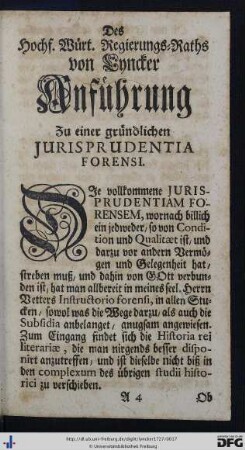 Des
Hochf. Würt. Regierungs-Raths
von Lyncker
Anführung
Zu einer gründlichen
JURISPRUDENTIA
FORENSI.
DIe vollkommene JURIS-
PRUDENTIAM FO-
RENSEM, wornach billich
ein jedweder, so von Condi-
tion und Qualitæt ist, und
darzu vor andern Vermö-
gen und Gelegenheit hat,
streben muß, und dahin von GOtt verbun-
den ist, hat man allbereit in meines seel. Herrn
Vetters Instructorio forensi, in allen Stu-
cken, sowol was die Wege darzu, als auch die
Subsidia anbelanget, anugsam angewiesen.
Zum Eingang findet sich die Historia rei
literariæ, die man nirgends besser dispo-
nirt anzutreffen, und ist dieselbe nicht biß in
den complexum des übrigen studii histo-
rici zu verschieben.
A 4 Ob
http://dl.ub.uni-freiburg.de/diglit/
© Universitätsbibliothek Freiburg
gefördert durch die
DFG